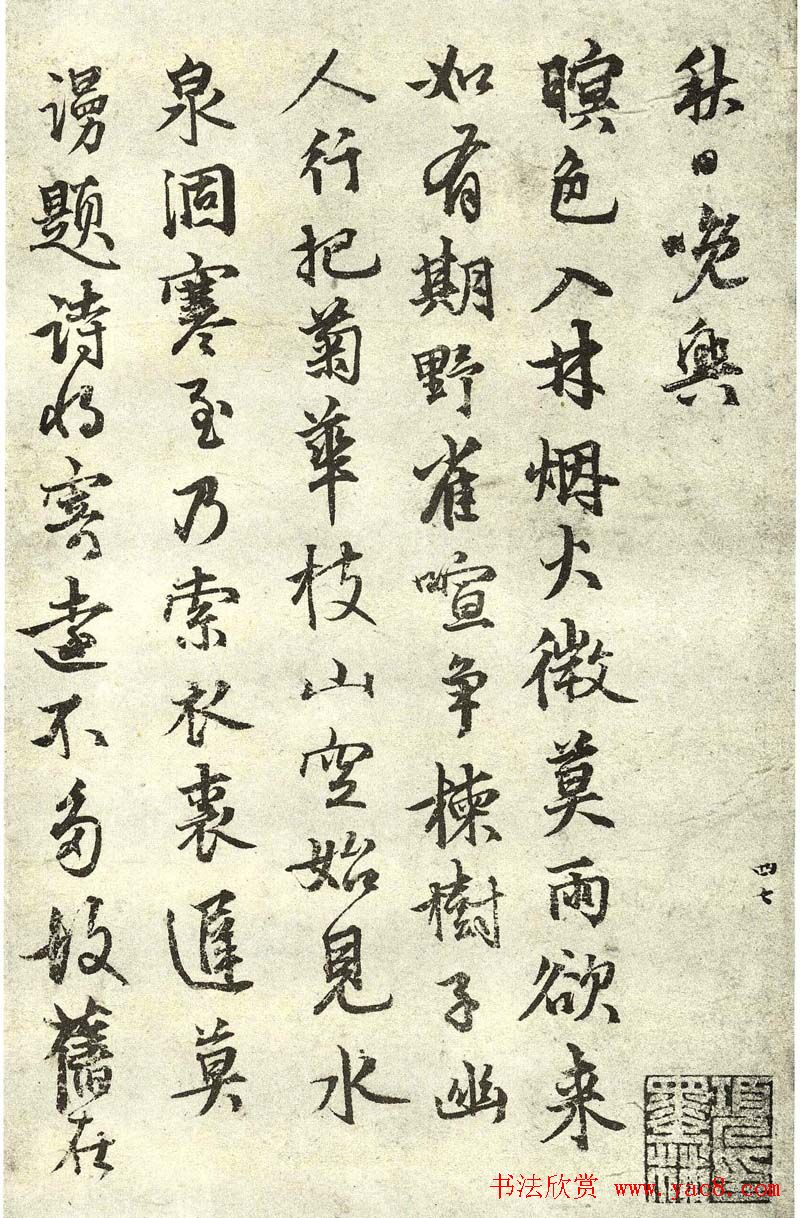 秋日晚興
暝色入林烟火微莫雨欲来
如有期野雀喧争楝樹子幽
人行把菊華枝山空始見水
泉涸寒至乃索衣裘遲莫
谩题诗将寄遠不多故舊在
四七
书法欣赏 www.yac8.com